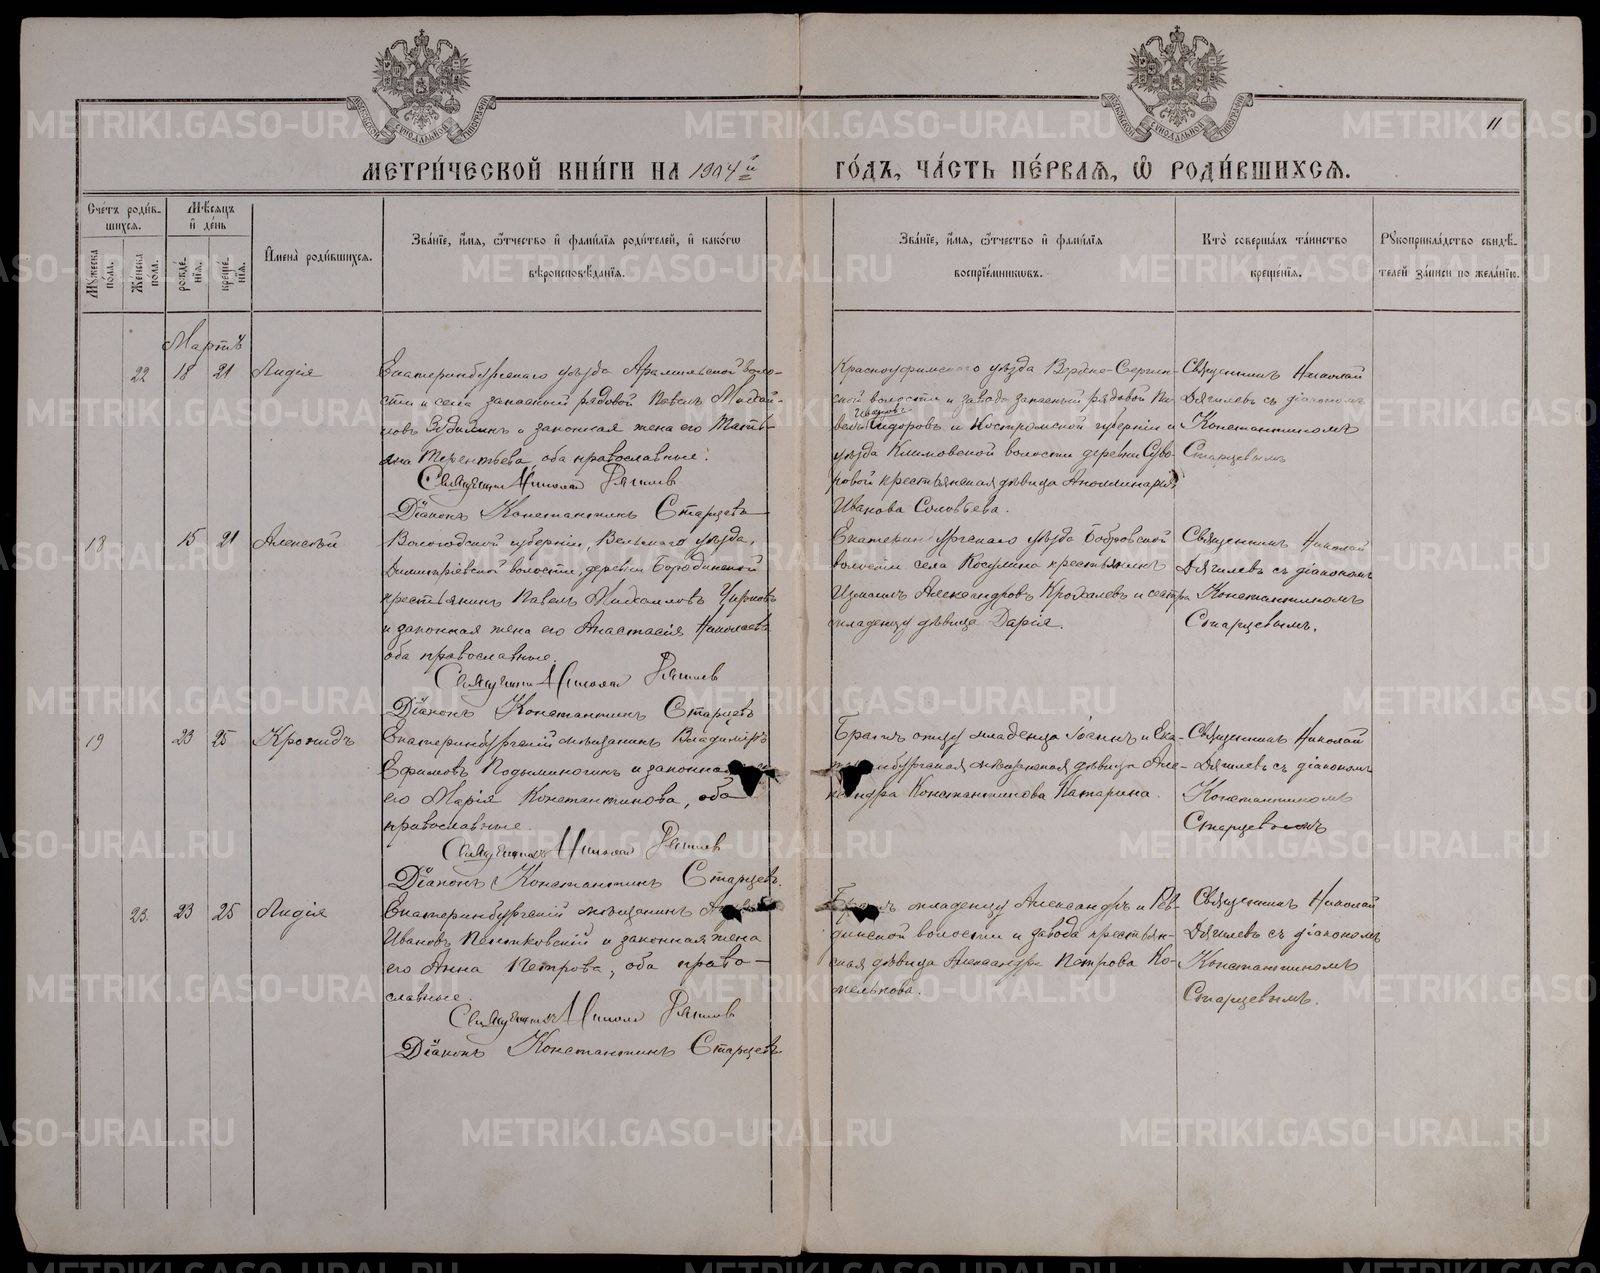 11
МЕТРИ́ЧЕСКОЙ КНИ́ГИ НА 1904й ГО́ДЪ, ЧА́СТЬ ПЕ́РВАѦ, Ѡ҆ РОДИ́ВШИХСѦ.
Сче́тъ роди́в-
шихсѧ.
Мꙋжеска пола.
Же́нска пола.
Мѣ́сѧцъ и҆ де́нь
рожде-нїѧ.
креще́-нїѧ.
И҆мена̀ роди́вшихсѧ.
Зва́нїе, и҆́мѧ, ѻ҆́тчество и҆ фами́лїѧ роди́телей, и҆ како́гѡ
вѣроисповѣ́данїѧ.
Зва́нїе, и҆́мѧ, ѻ҆́тчество и҆ фами́лїѧ
воспрїе́мникѡвъ.
Кто̀ соверша́лъ та́инство
креще́нїѧ.
Рꙋкоприкла́дство свидѣ́-
телей за́писи по жела́нїю.
Мартъ
22 18 21 Лидія
Екатеринбургскаго уѣзда Арамильской воло-
сти и села запасный рядовой Павелъ Михай-
ловъ и законная жена его Тать-
яна Терентьева, оба православные.
Священникъ Николай Дягилевъ
Діаконъ Константинъ Старцевъ
Красноуфимскаго уѣзда Верхне-Сергин-
ской волости и завода запасный рядовой Па-
велъ Ивановъ Сидоровъ и Костромской губерніи и
уѣзда Климовской волости деревни Суво-
ровой крестьянская дѣвица Аполлинарія
Иванова Соловьева.
Священникъ Николай
Дягилевъ съ діакономъ
Константиномъ
Старцевымъ
18 15 21 Алексѣй
Вологодской губерніи, Вельскаго уѣзда,
Димитріевской волости, деревни Бородинской
крестьянинъ Павелъ Михаиловъ
и законная жена его Анастасія Николаева
оба православные.
Священникъ Николай Дягилевъ
Діаконъ Константинъ Старцевъ
Екатеринбургскаго уѣзда Бобровской
волости села Косулина крестьянинъ
Александровъ Крохалевъ и сестра
младенцу дѣвица Дарія.
Священникъ Николай
Дягилевъ съ діакономъ
Константиномъ
Старцевымъ.
19 23 25 Кронидъ
Екатеринбургскій мѣщанинъ Владиміръ
Ефимовъ Подыминогинъ и законная
его Марія Константинова, оба
православные.
Священникъ Николай Дягилевъ
Діаконъ Константинъ Старцевъ.
Братъ отцу младенца Іоаннъ и Ека-
теринбургская мѣщанская дѣвица Але-
ксандра Константинова Катарина.
Священникъ Николай
Дягилевъ съ діакономъ
Константиномъ
Старцевымъ
23. 23 25 Лидія
Екатеринбургскій мѣщанинъ
Ивановъ Пентковскій и законная жена
его Анна Петрова, оба право-
славные.
Священникъ Николай Дягилевъ
Діаконъ Константинъ Старцевъ
Братъ младенцу Александръ и Рев-
динской волости и завода крестьян-
ская дѣвица Александра Петрова Ко-
мелькова.
Священникъ Николай
Дягилевъ съ діакономъ
Константиномъ
Старцевымъ.
METRIKI.GASO-URAL.RU